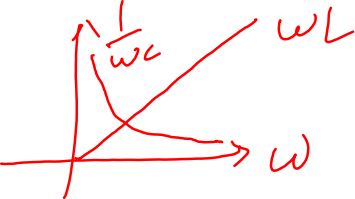 1/ωC
ωL
ω